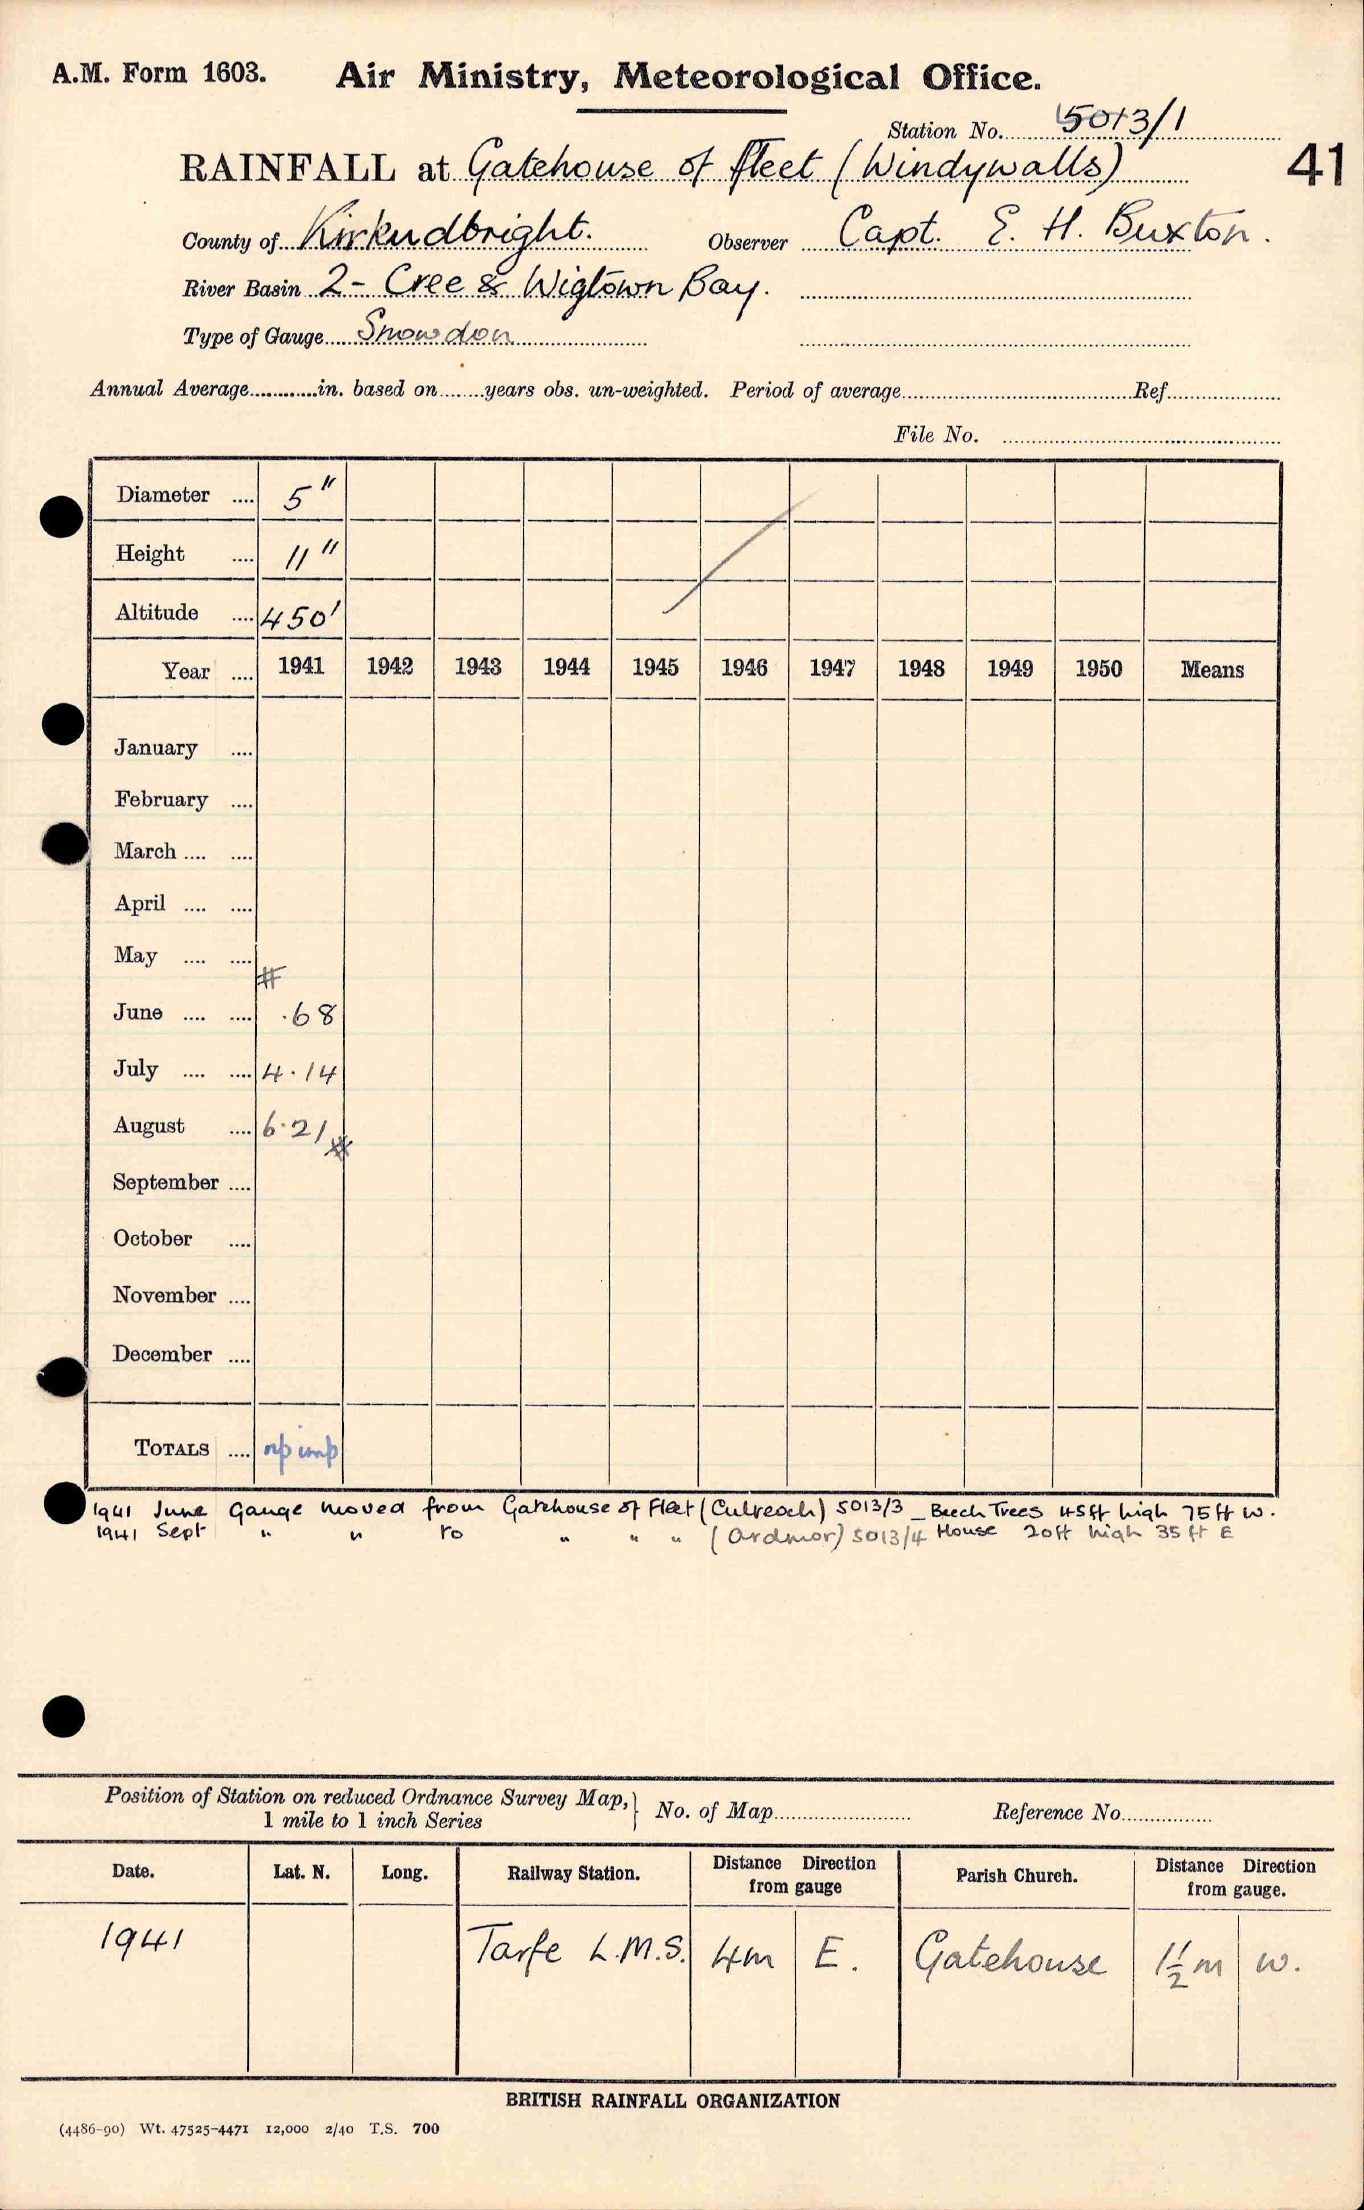 A.M. Form 1603. Air Ministry, Meteorological Office.
Station No. 5013/1
41
RAINFALL at Gatehouse of Fleet (Windywalls)
County of Kirkudbright. Observer Capt. E. H. Buxton.
River Basin 2- Cree & Wigtown Bay.
Type of Gauge Snowdon
Annual Average in. based on years obs. un-weighted. Period of average Ref.
File No.
Diameter 5"
Height 11"
Altitude 450'
Year 1941 1942 1943 1944 1945 1946 1947 1948 1949 1950 Means
January
February
March
April
May
#
June .68
July 4.14
August 6.21
#
September
October
November
December
TOTALS
1941 June Gauge moved from Gatehouse of Fleet (Culreoch) 5013/3 – Beech Trees 45ft high 75ft W.
1941 Sept " " to " " " (Ardmor) 5013/4 House 20ft high 35ft E
Position of Station on reduced Ordnance Survey Map, } No. of Map Reference No.
1 mile to 1 inch Series
Date. Lat. N. Long. Railway Station. Distance Direction from gauge Parish Church. Distance Direction from gauge.
1941 Tarfe L.M.S. 4m E. Gatehouse 1½m W.
BRITISH RAINFALL ORGANIZATION
(4486-90) Wt. 47525-4471 12,000 2/40 T.S. 700